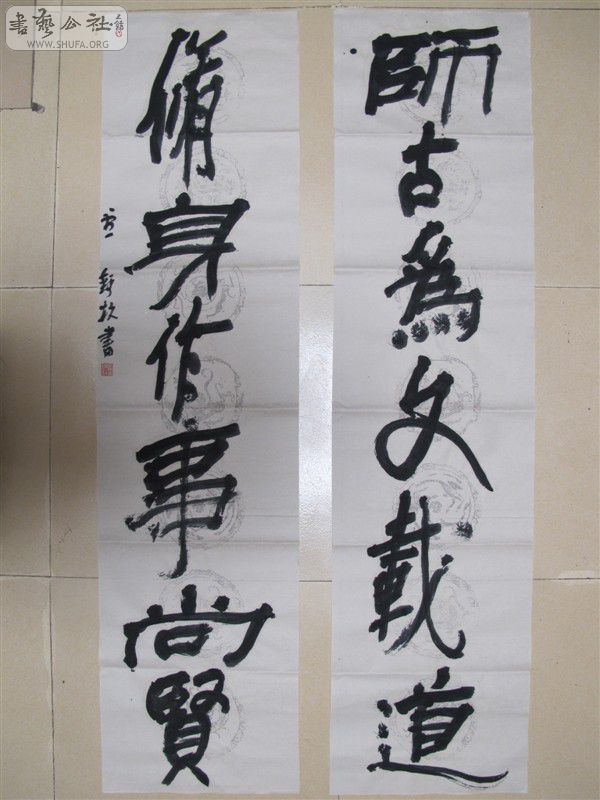 師古為文載道
脩身作事尚賢
書
書藝公社
WWW.SHUFA.ORG